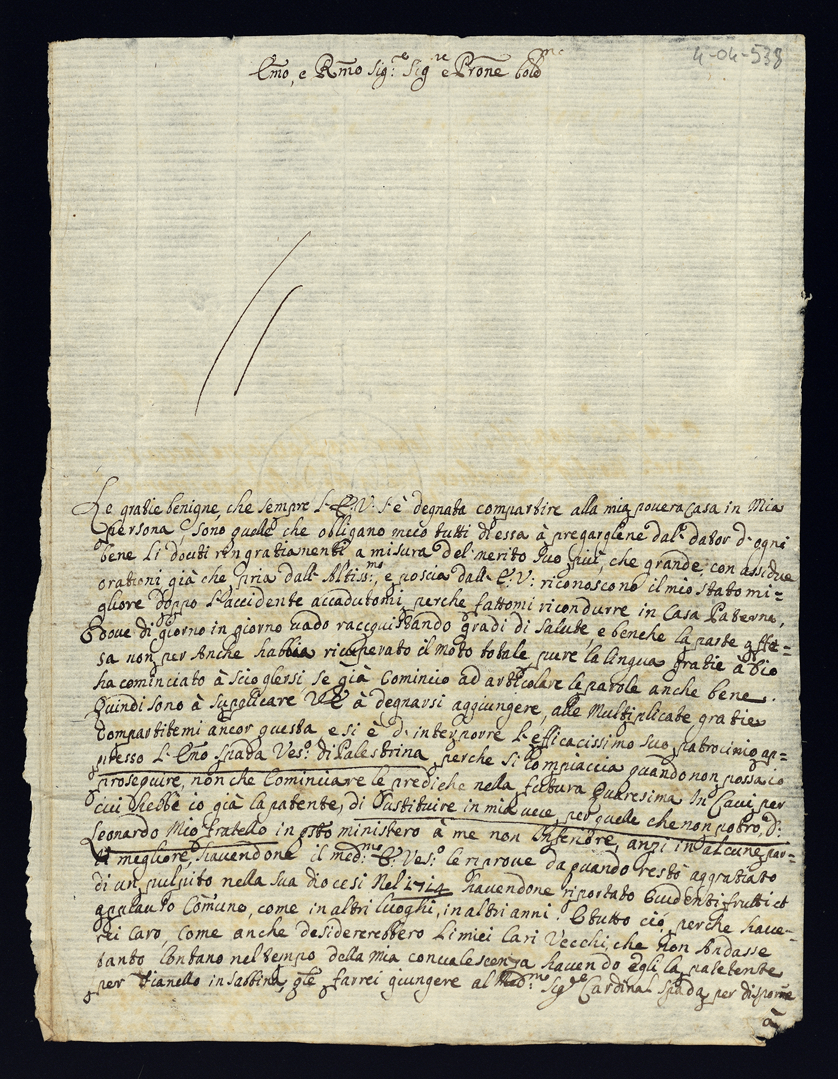 4-04-538
Emo, e Rmo Sig.re Sig.re e Prone Col.mo
Le gratie benigne, che sempre l'E.V. s'è degnata compartire alla mia povera Casa in Mia
persona sono quelle che obligano meco tutti d'essa à pregarglene dal dator d'ogni
bene Li douti ringratiamenti a misura del merito Suo piu, che grande, con assidue
orationi già che pria dall'Altiss.mo, e poscia dall'E.V. riconoscono il mio stato mi=
gliore doppo l'accidente accadutomi, perche fattomi ricondurre in Casa Paterna,
dove di giorno in giorno vado racquistando gradi di salute e benche la parte offe=
sa non per Anche habbia ricuperato il moto totale pure la lingua gratie à Dio
ha cominciato à scioglersi, se già Comincio ad articolare le parole anche bene.
Quindi sono à supplicare V.E. à degnarsi aggiungere, alle Multiplicate gratie
compartitemi ancor questa, e si è d'interporre l'efficacissimo suo patrocinio ap=
presso l'Emo Spada Ves.o di Palestrina perche si compiaccia quando non possa io
proseguire, non che Cominciare le prediche nella futura Quaresima In Cavi, per
cui hebbe io già la patente, di sustituire in mia vece per quelle che non potrò, di
Leonardo Mio fratello in qsto ministero à me non Inferiore, anzi in alcune par=
ti megliore, havendone il med.mo E. Ves.o le riprove da quando restò aggratiato
di un pulpito nella sua diocesi Nel 1714 havendone riportato Evidenti frutti et
applauso Comune, come in altri luoghi, in altri anni. E tutto ciò, perche have=
rei Caro, Come anche desidererebbero Li miei Cari Vecchi, che non Andasse
tanto lontano nel tempo della mia convalescenza havendo egli la patente
per Vianello in Sabbina, qle farrei giungere al Med.mo Sig.re Cardinal Spada per disporne
à